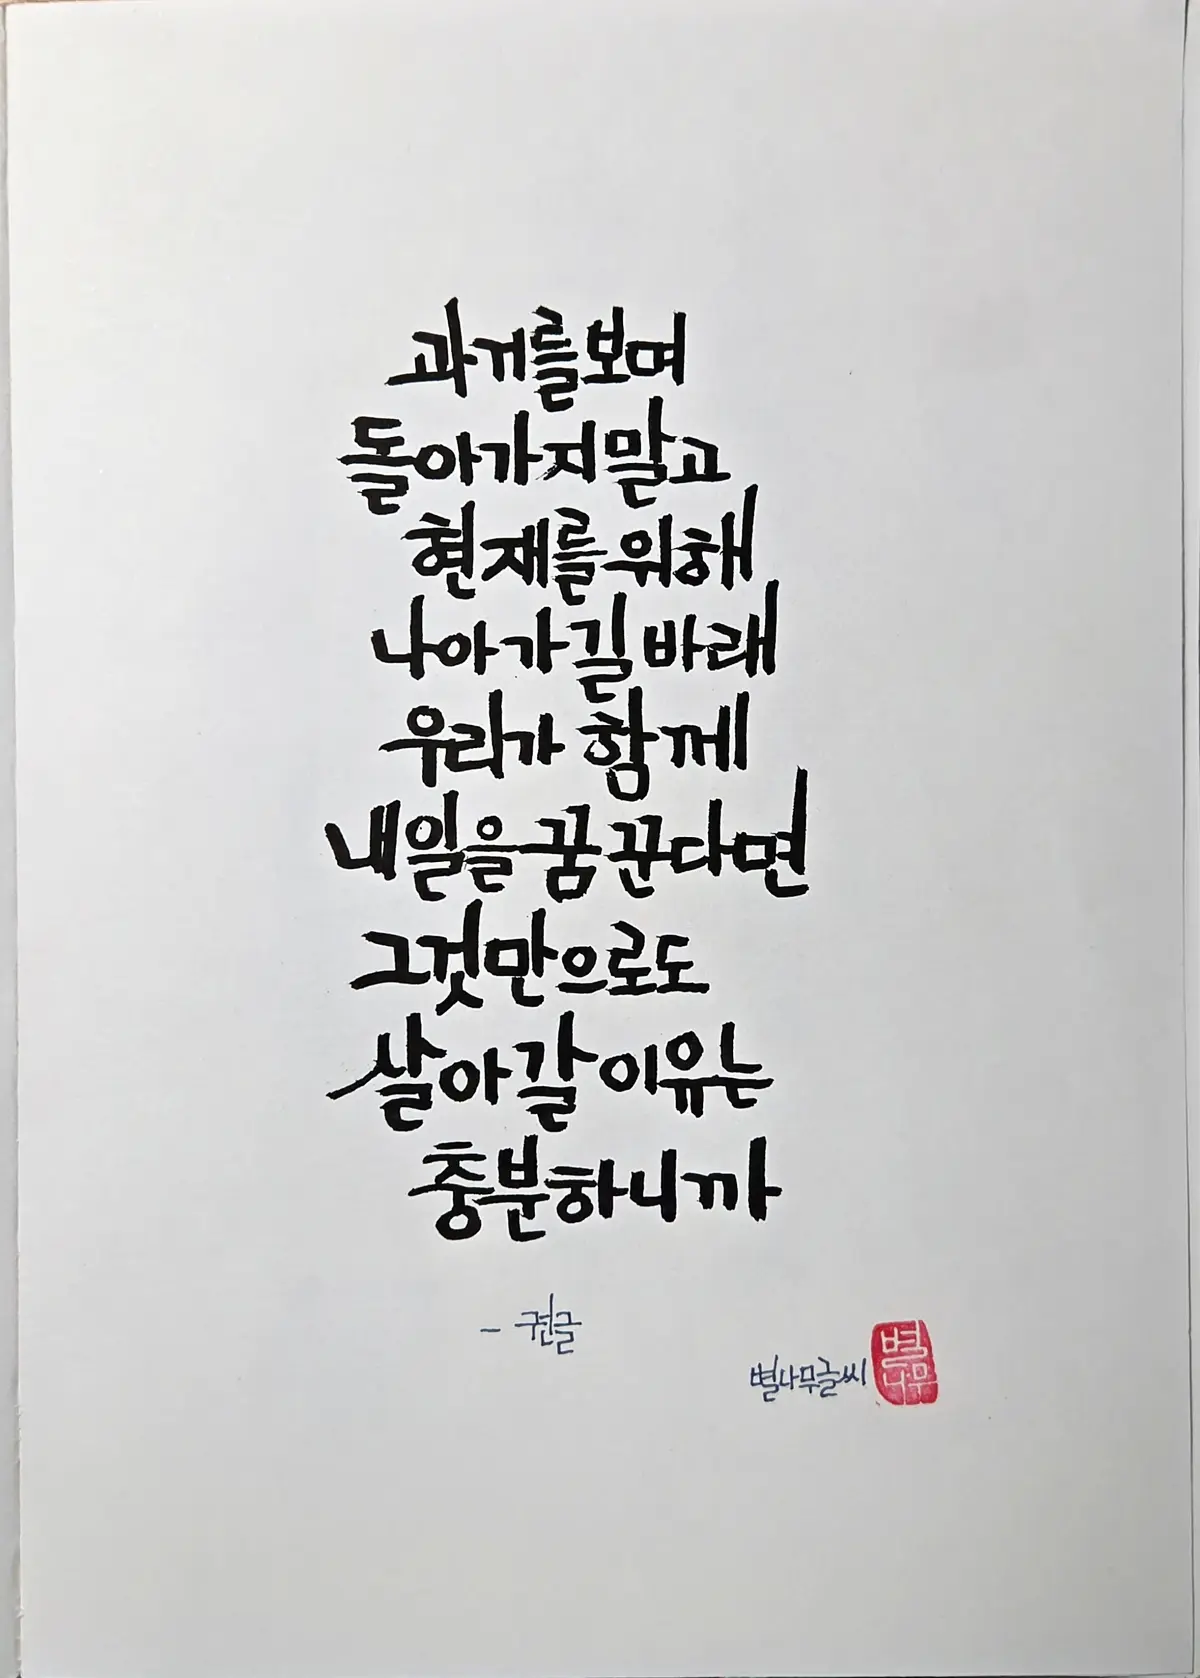 과거를 보며
돌아가지 말고
현재를 위해
나아가길 바래
우리가 함께
내일을 꿈꾼다면
그것만으로도
살아갈 이유는
충분하니까
- 퀀글
별나무글씨
별
나무